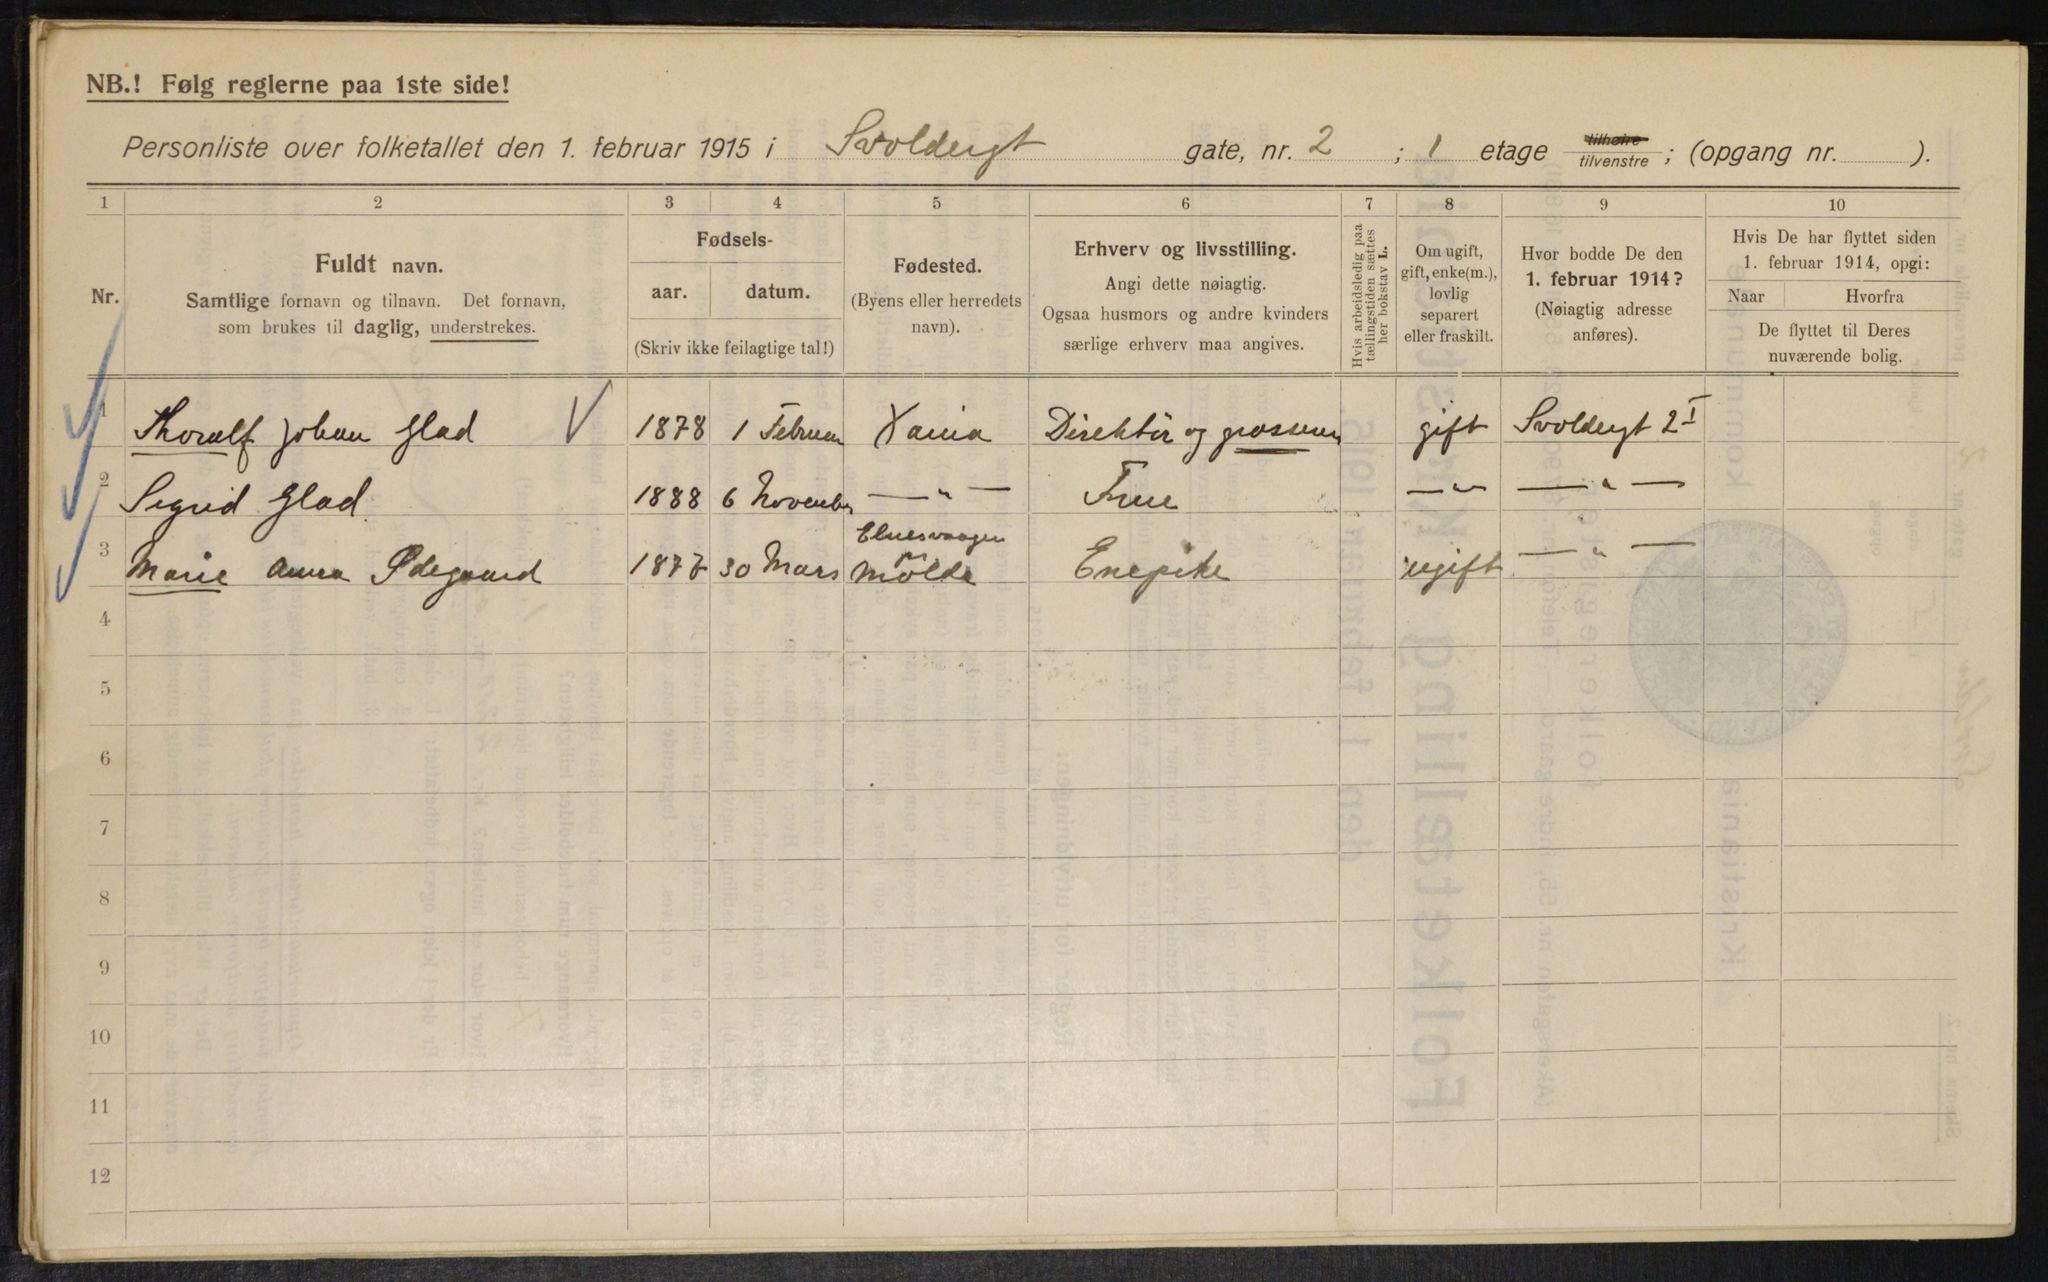 NB.! Følg reglerne paa 1ste side!
Personliste over folketallet den 1. februar 1915 i Svoldergt gate, nr. 2 ; 1 etage tilhøire tilvenstre ; (opgang nr. ).
1 2 3 4 5 6 7 8 9 10
Nr.
Fuldt navn.
Samtlige fornavn og tilnavn. Det fornavn,
som brukes til daglig, understrekes.
Fødsels-
aar. datum.
(Skriv ikke feilagtige tal!)
Fødested.
(Byens eller herredets
navn).
Erhverv og livsstilling.
Angi dette nøiagtig.
Ogsaa husmors og andre kvinders
særlige erhverv maa angives.
Hvis arbeidsledig paa
tællingstiden sættes
her bokstav L.
Om ugift,
gift, enke(m.),
lovlig
separert
eller fraskilt.
Hvor bodde De den
1. februar 1914?
(Nøiagtig adresse
anføres).
Hvis De har flyttet siden
1. februar 1914, opgi:
Naar Hvorfra
De flyttet til Deres
nuværende bolig.
1 Thoralf Johan Glad 1878 1 Februar Xania Direktör og grosserer gift Svoldergt 2 I
2 Sigrid Glad 1888 6 November — " — Frue — " — — " —
3 Marie Anna Ødegaard 1877 30 Mars Molde Enepike ugift — " —
4
5
6
7
8
9
10
11
12